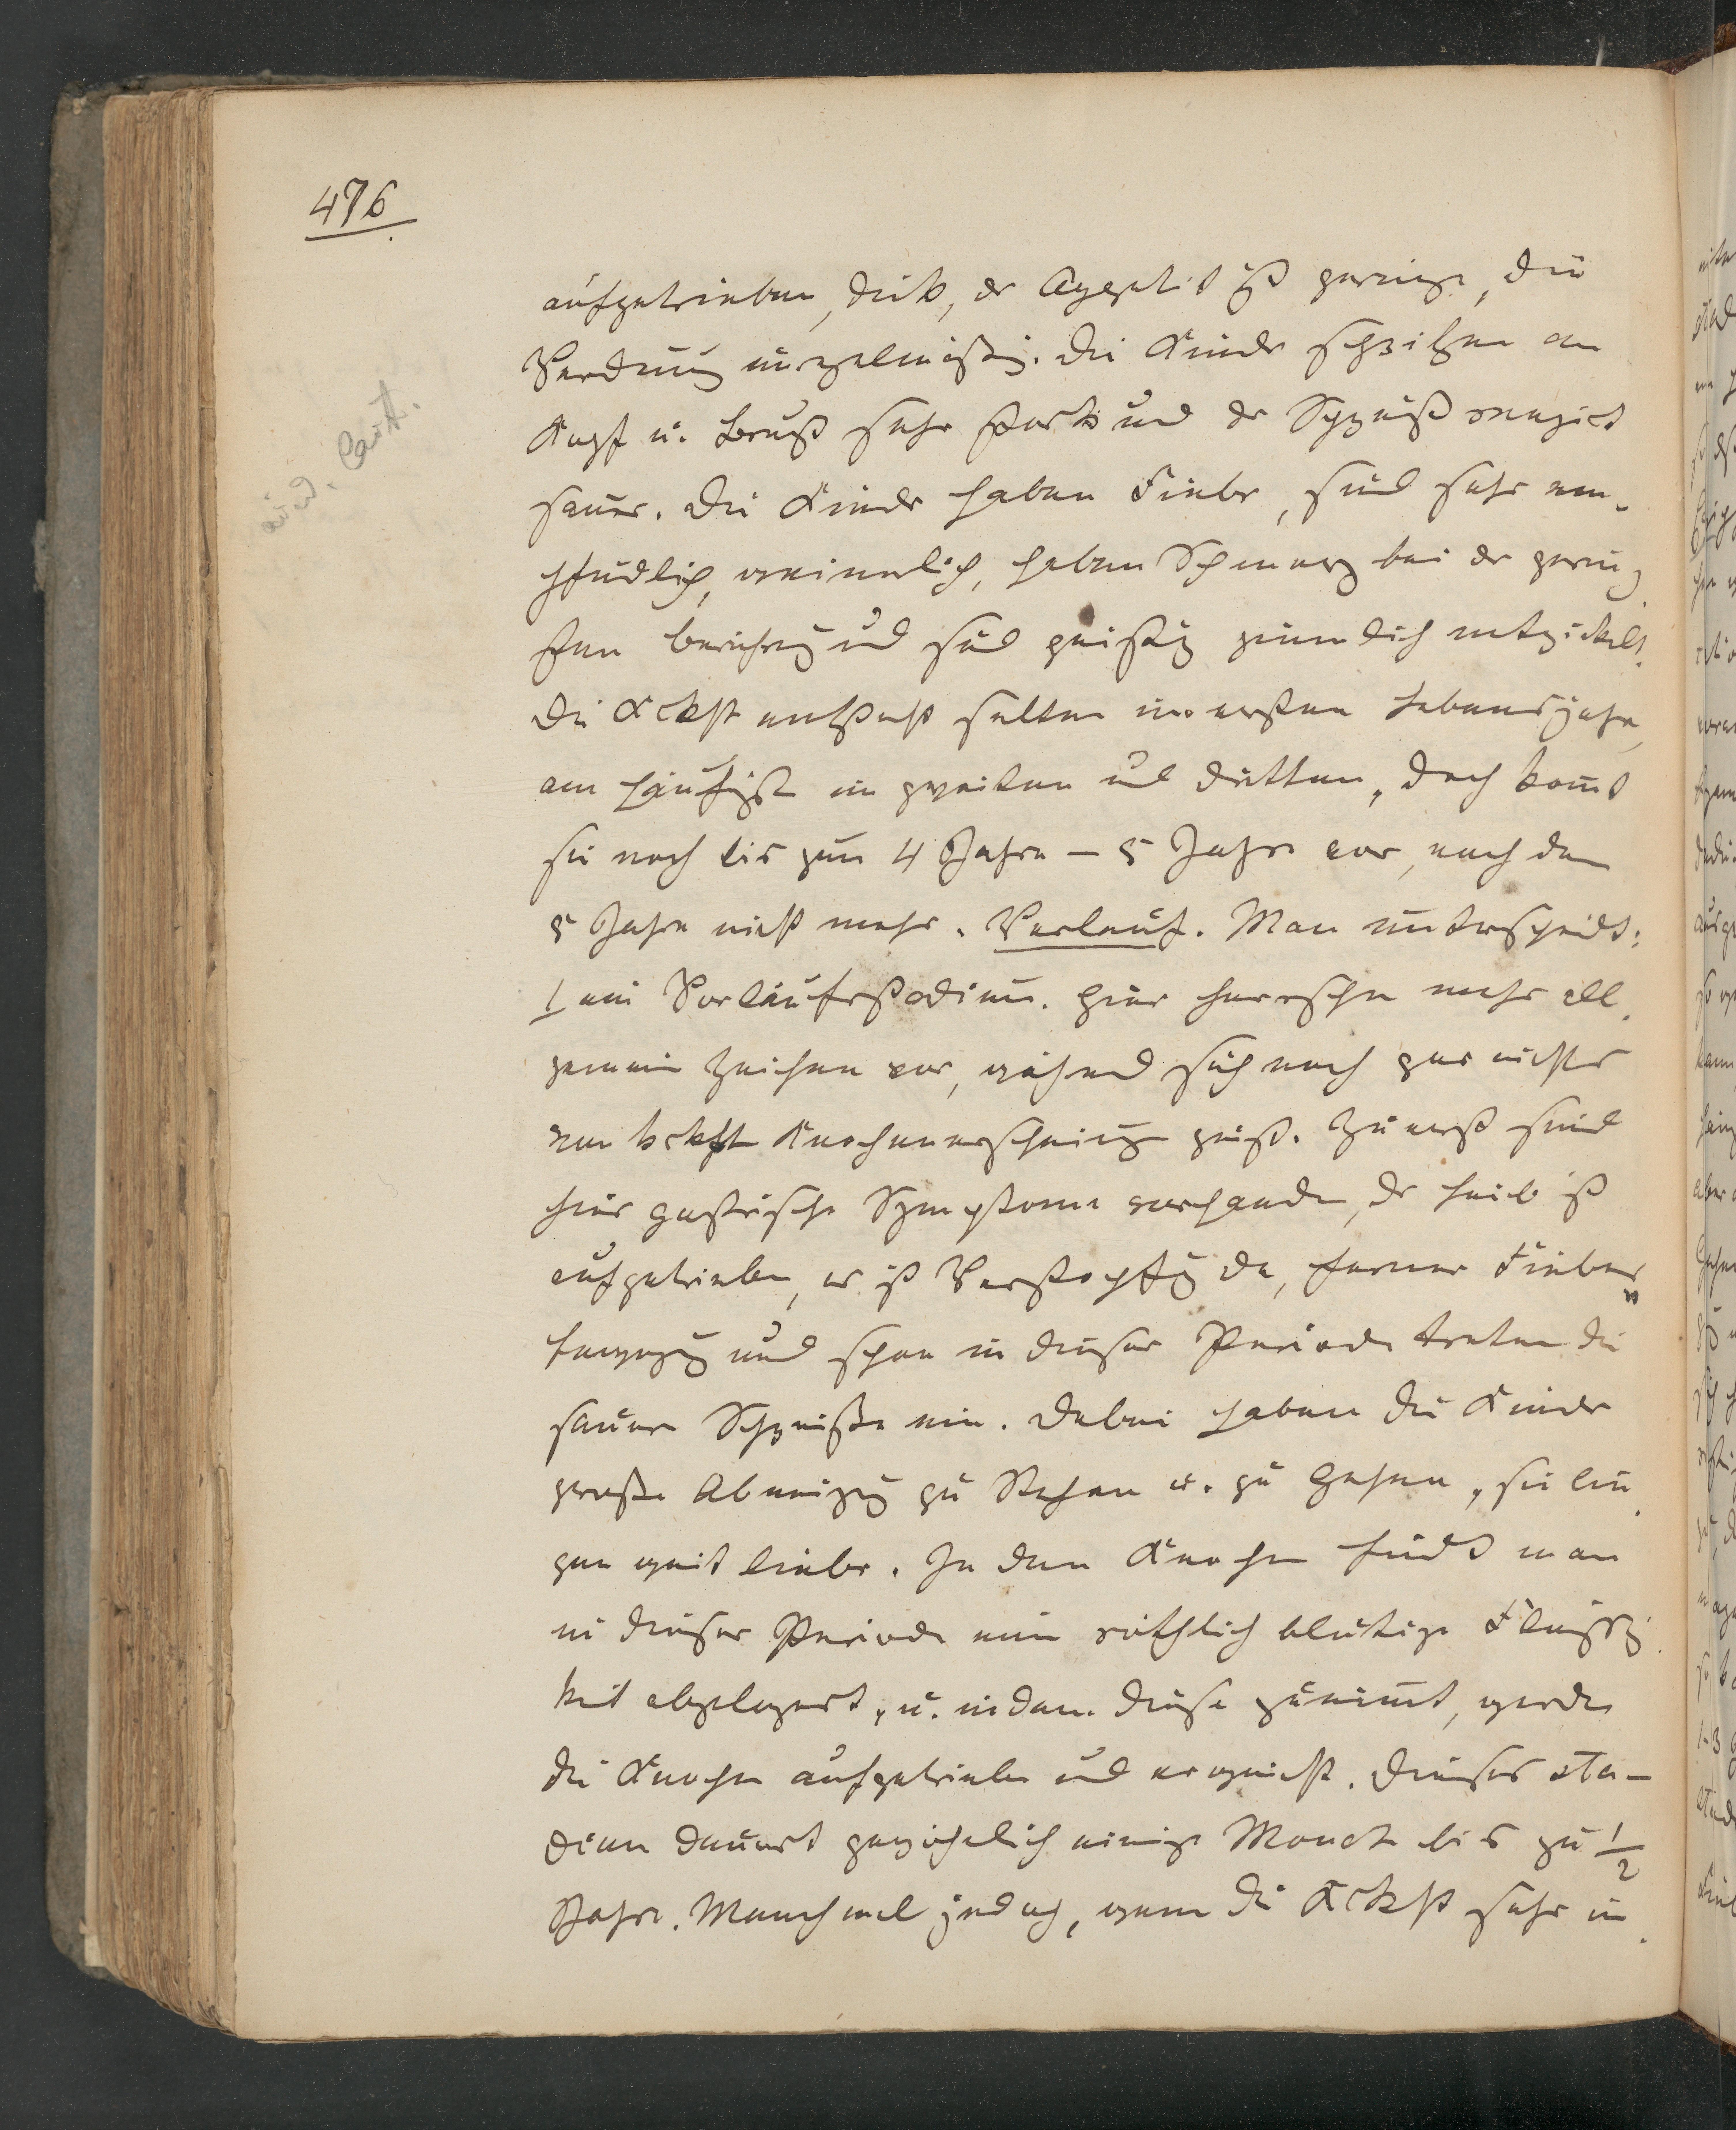 476
aufgetrieben, dick, der Appetit ist geringe, die
Verdauung unregelmäßig. Die Kinder schwitzen am
Kopf u. Brust sehr stark und der Schweiß reagirt
sauer. Die Kinder haben Fieber, sind sehr em-
pfindlich, weinerlich, haben Schmerz bei der gering
sten Berührung und sind geistig ziemlich entwickelt.
Die Krkht entsteht selten im ersten Lebensjahre,
am häufigst im zweiten und dritten, doch komt
sie noch bis zum 4 Jahre – 5 Jahre vor, nach dem
5 Jahre nicht mehr. Verlauf. Man unterscheidt:
1 ein Vorläuferstadium. Hier herrschen mehr all
gemein Zeichen vor, während sich noch gar nichts
von Knochenerscheinung zeigt. Zuerst sind
hier gastrische Symptome vorhanden, der Leib ist
aufgetrieben, es ist Verstopfung da, ferner Fieber
und schon in dieser Periode treten die
sauren Schweiße ein. Dabei haben die Kinder
große Abneigung zu Stehen u. zu Gehen, sie lie
gen weit lieber. In den Knochen findet man
in dieser Periode eine röthlich blutige Flüssig
keit abgelagert, u. indem diese zunimt, werden
die Knochen aufgetrieben und erweicht. Dieses Sta-
dium dauert gewöhnlich einige Monate bis zu 1/2
Jahre. Manchmal jedoch, wenn die Krkht sehr in